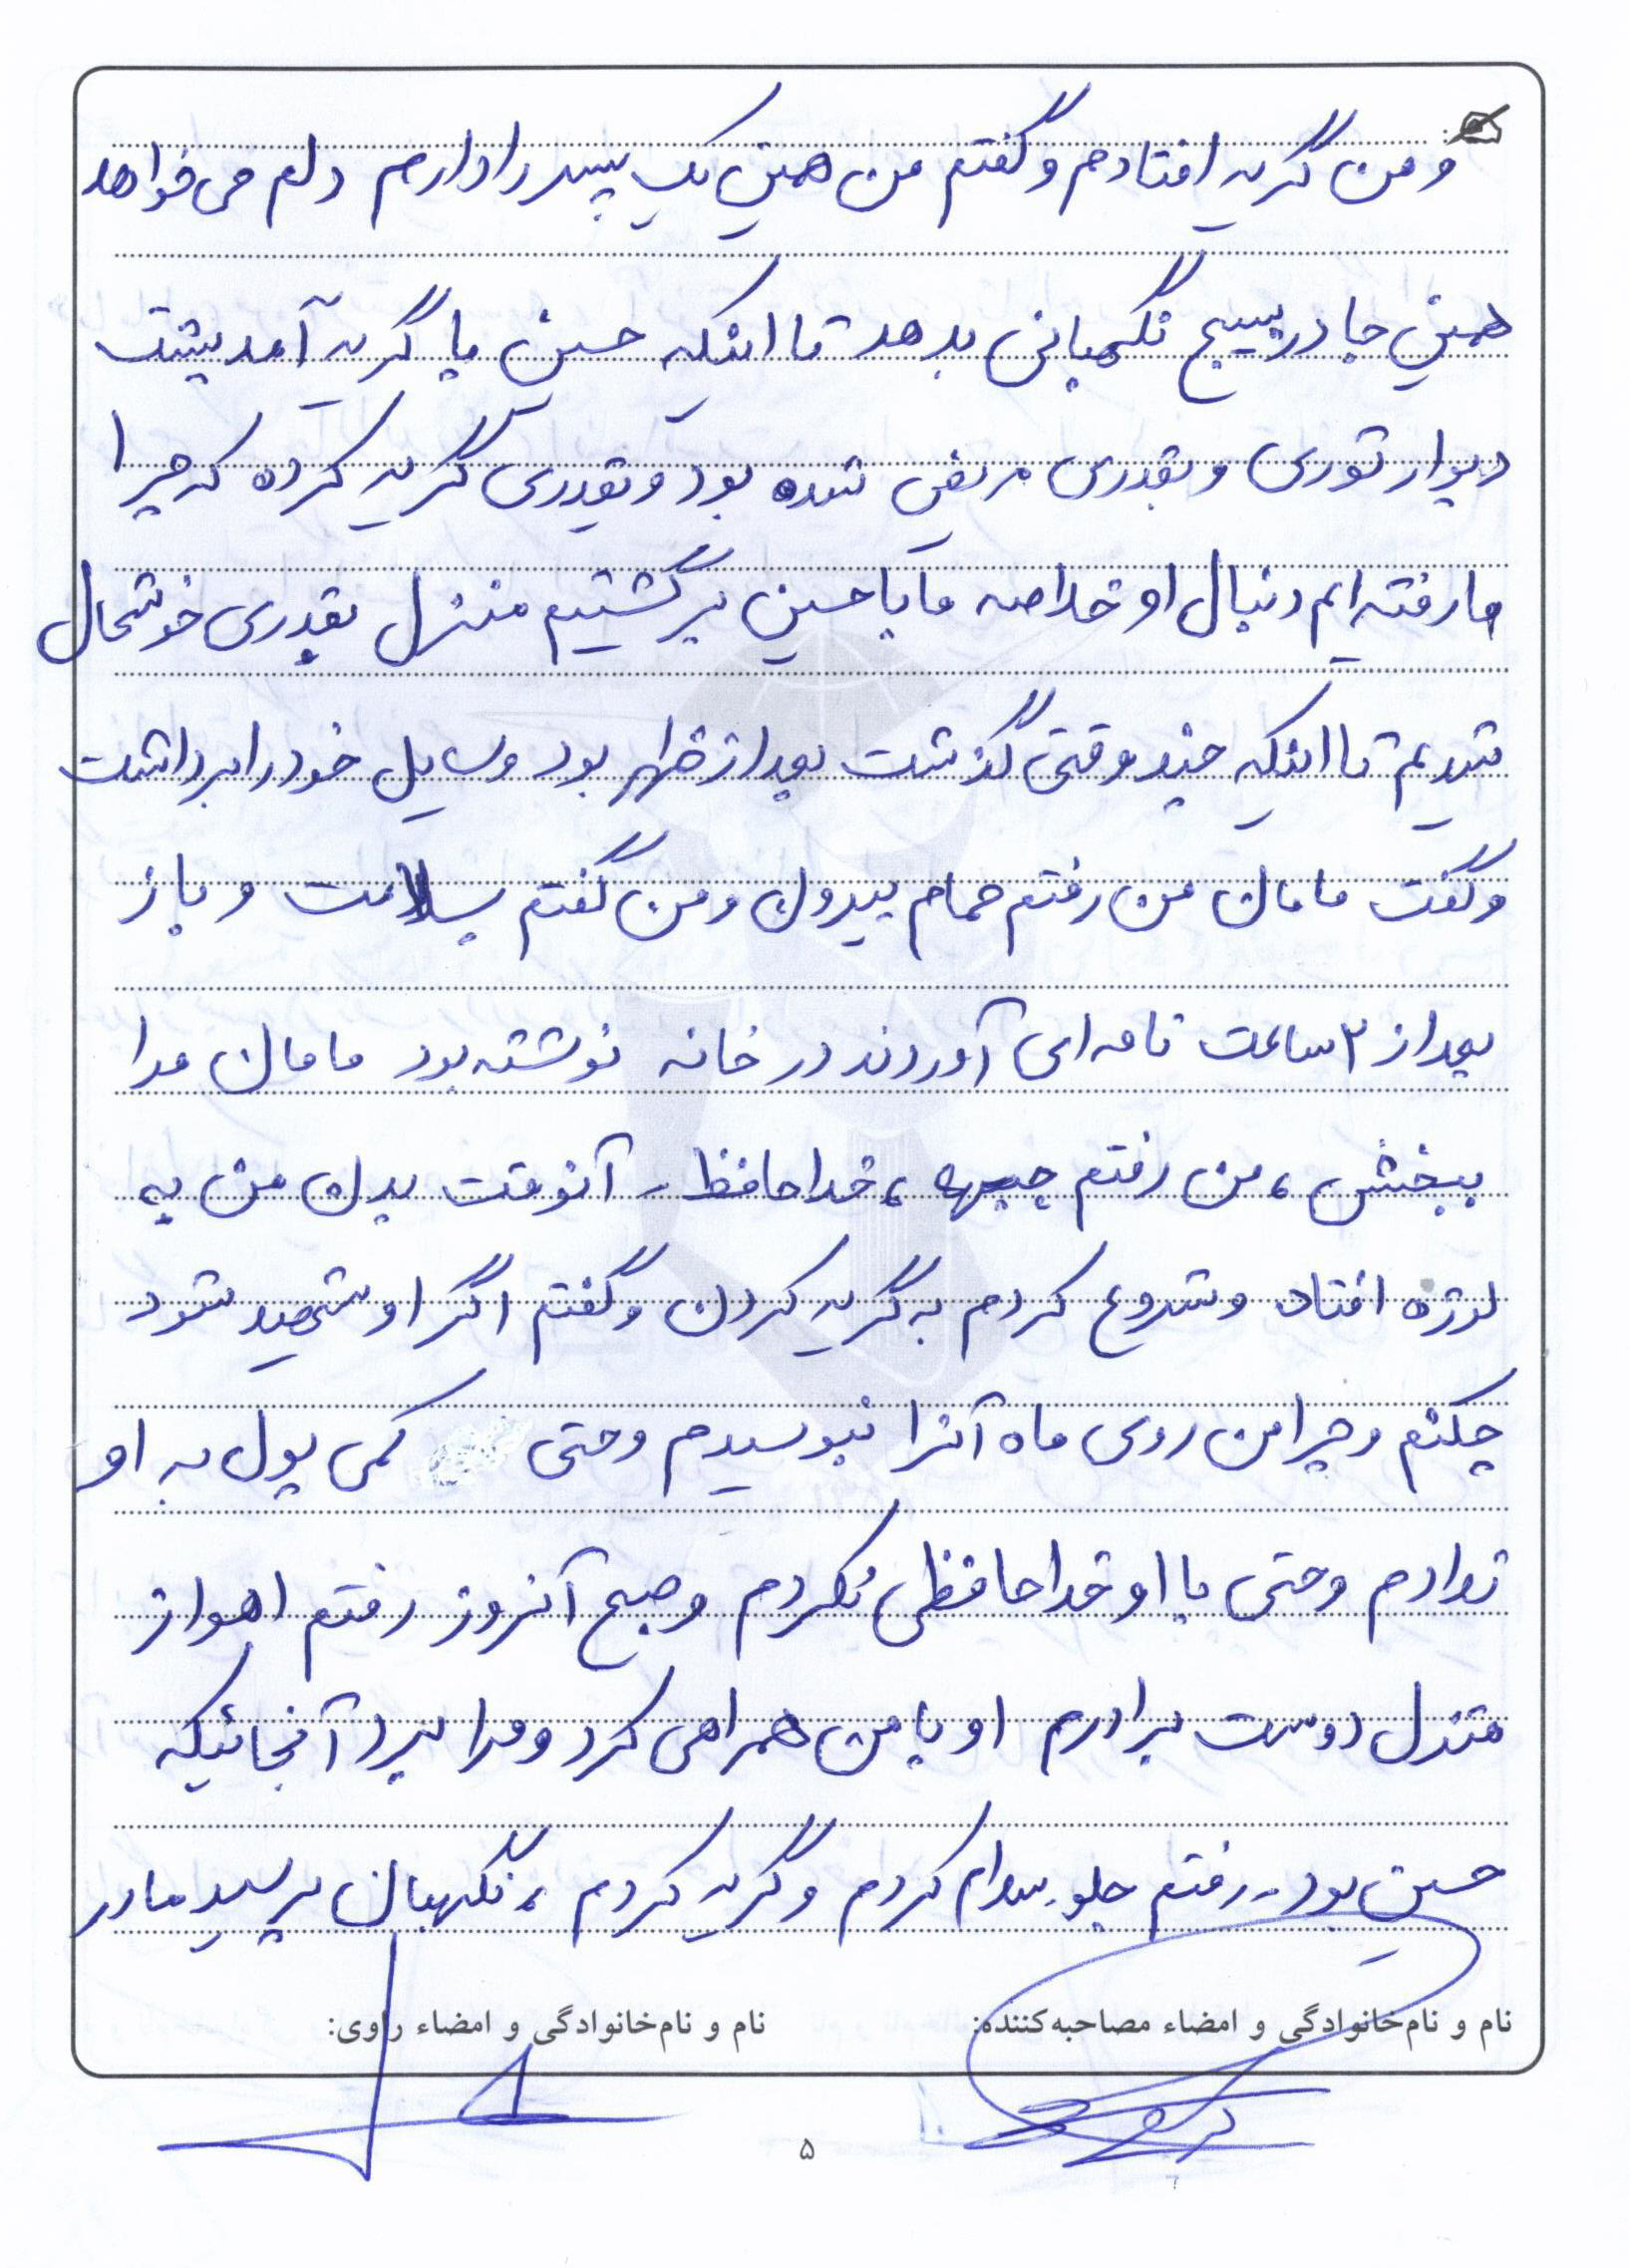 و من گریه افتادم و گفتم من همین یک پسر را دارم دلم می‌خواهد
همین جا در بسیج نگهبانی بدهد تا اینکه حسین با گریه آمد پشت
دیوار توری و بقدری مریض شده بود و بقدری گریه کرده که چرا
ما رفته‌ایم دنبال او خلاصه ما با حسین برگشتیم منزل بقدری خوشحال
شدیم تا اینکه چند وقتی گذشت بعد از ظهر بود وسایل خود را برداشت
و گفت مامان من رفتم حمام بیرون و من گفتم بسلامت و باز
بعد از ۲ ساعت نامه‌ای آوردند در خانه نوشته بود مامان مرا
ببخش، من رفتم جبهه، خداحافظ - آنوقت بدن من به
لرزه افتاد و شروع کردم به گریه کردن و گفتم اگر او شهید شود
چکنم و چرا من روی ماه آنرا نبوسیدم و حتی کمی پول به او
ندادم و حتی با او خداحافظی نکردم و صبح آنروز رفتم اهواز
منزل دوست برادرم او با من همراهی کرد و مرا برد آنجائیکه
حسین بود - رفتم جلو سلام کردم و گریه کردم، نگهبان پرسید مادر
نام و نام‌خانوادگی و امضاء مصاحبه‌کننده:
نام و نام‌خانوادگی و امضاء راوی:
۵